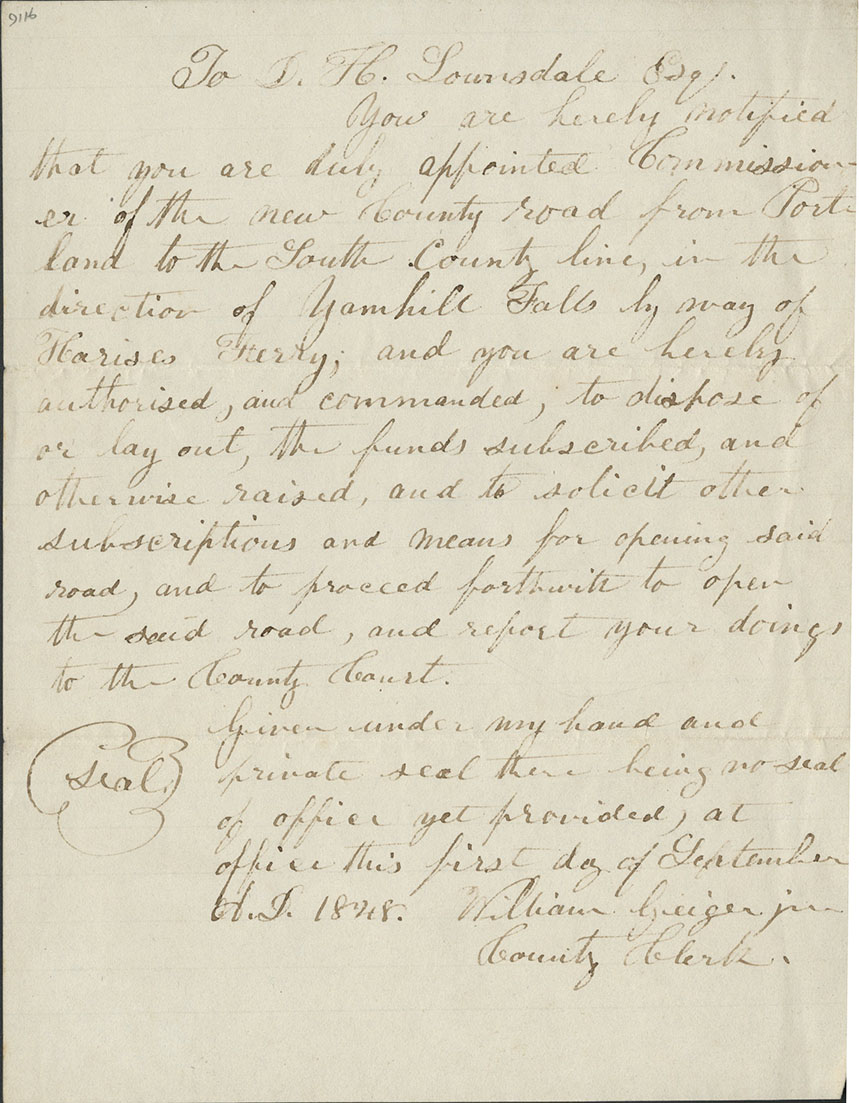 9116
To D. H. Lownsdale Esq.
You are hereby notified
that you are duly appointed Commission-
er of the new County road from Port-
land to the South County line, in the
direction of Yamhill Falls by way of
Harises Ferry; and you are hereby
authorised, and commanded, to dispose of
or lay out, the funds subscribed, and
otherwise raised, and to solicit other
subscriptions and means for opening said
road, and to proceed forthwith to open
the said road, and report your doings
to the County Court.
Given under my hand and
Seal. private seal there being no seal
of office yet provided, at
office this first day of September
A.D. 1848. William Geiger jun
County Clerk.